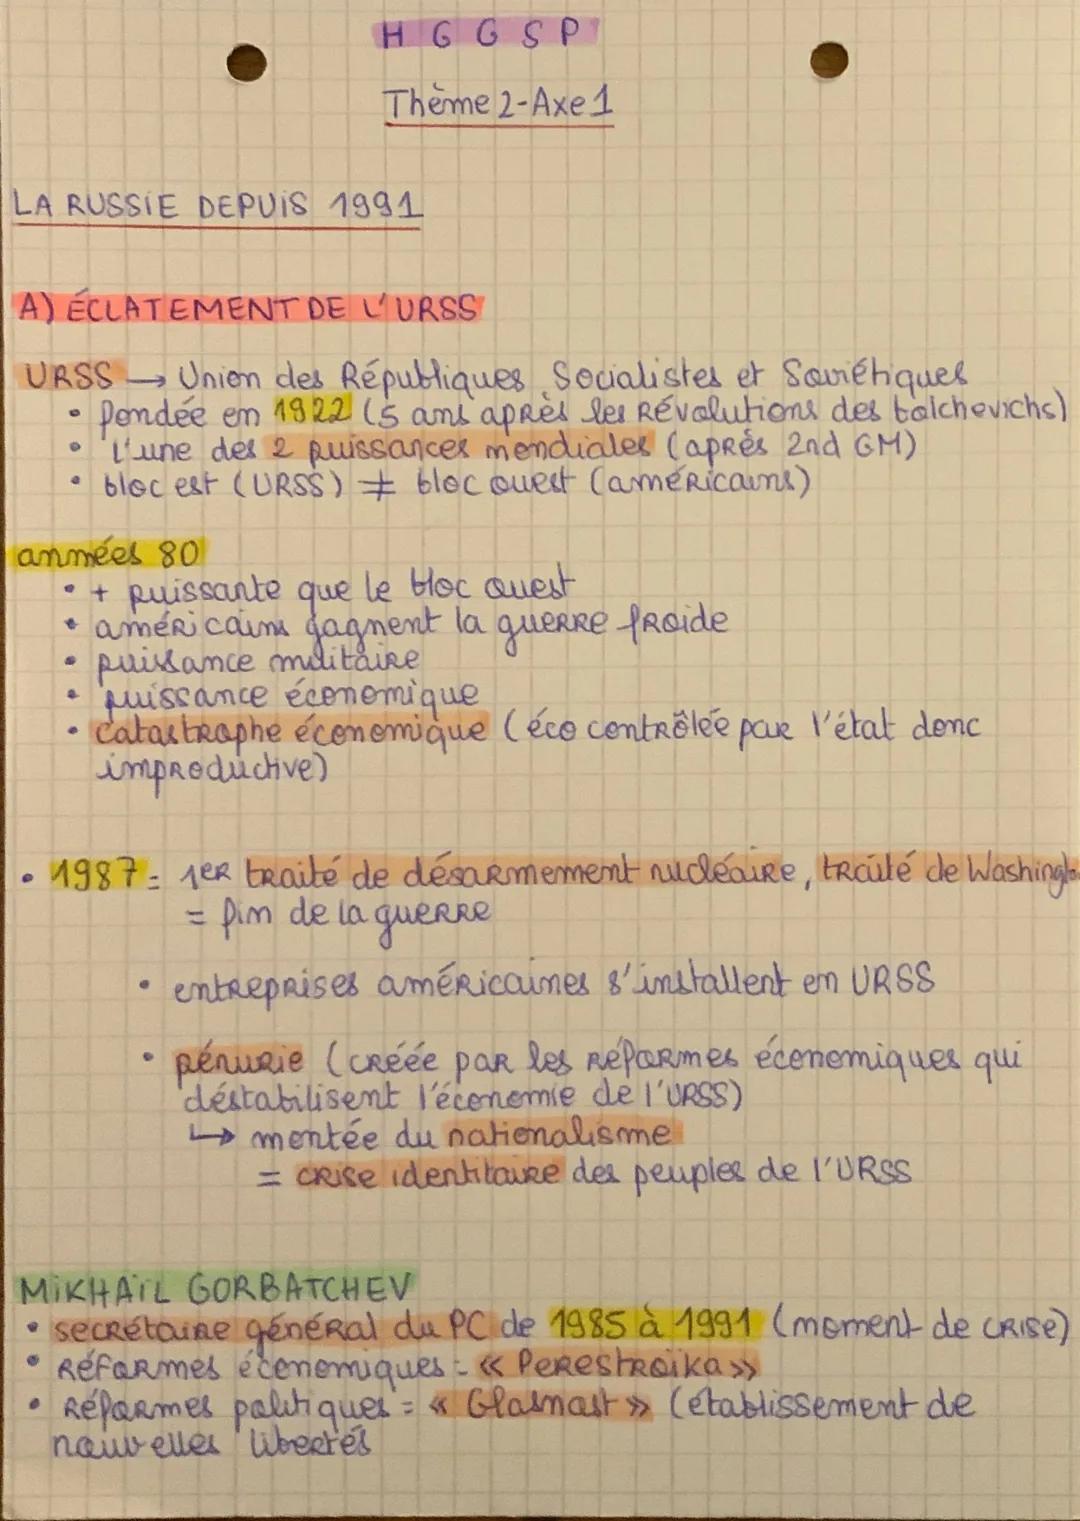 H G G S P
Thème 2-Axe 1
LA RUSSIE DEPUIS 1991
A) ÉCLATEMENT DE L'URSS
URSS → Union des Républiques Socialistes et Soviétiques
• fondée en 1922 (5 ans après les Révolutions des bolchevichs)
• l'une des 2 puissances mondiales (après 2nd GM)
• bloc est (URSS) ≠ bloc ouest (américains)
années 80
• + puissante que le bloc ouest
• américains gagnent la guerre froide
• puissance militaire
• puissance économique
• catastrophe économique (éco contrôlée par l'état donc
improductive)
• 1987 = 1er traité de désarmement nucléaire, traité de Washington
= fin de la guerre
• entreprises américaines s'installent en URSS
• pénurie (créée par les réformes économiques qui
déstabilisent l'économie de l'URSS)
↳ montée du nationalisme
= crise identitaire des peuples de l'URSS
MIKHAÏL GORBATCHEV
• secrétaire général du PC de 1985 à 1991 (moment de crise)
• Réformes économiques = « Perestroïka »
• Réformes politiques = « Glasnost » (établissement de
nouvelles libertés